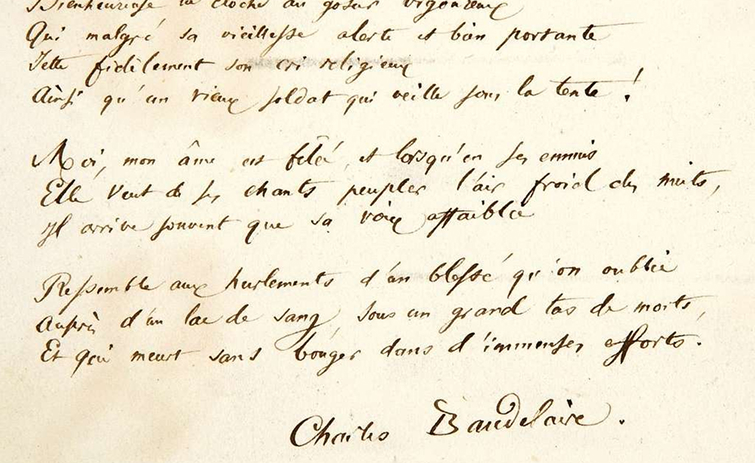 Bienheureuse la cloche au gosier vigoureux
Qui malgré sa vieillesse alerte et bien portante
Jette fidèlement son cri religieux
Ainsi qu'un vieux soldat qui veille sous la tente !
Moi, mon âme est fêlée, et lorsqu'en ses ennuis
Elle veut de ses chants peupler l'air froid des nuits,
Il arrive souvent que sa voix affaiblie
Ressemble aux hurlements d'un blessé qu'on oublie
Auprès d'un lac de sang, sous un grand tas de morts,
Et qui meurt sans bouger dans d'immenses efforts.
Charles Baudelaire.